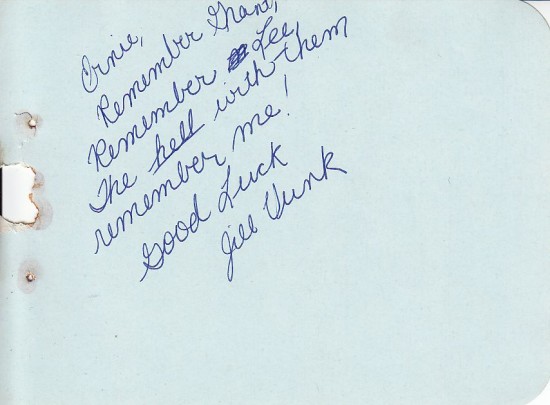 Ernie,
Remember Grant,
Remember Lee,
The hell with them
remember me!
Good Luck
Jill Vunk